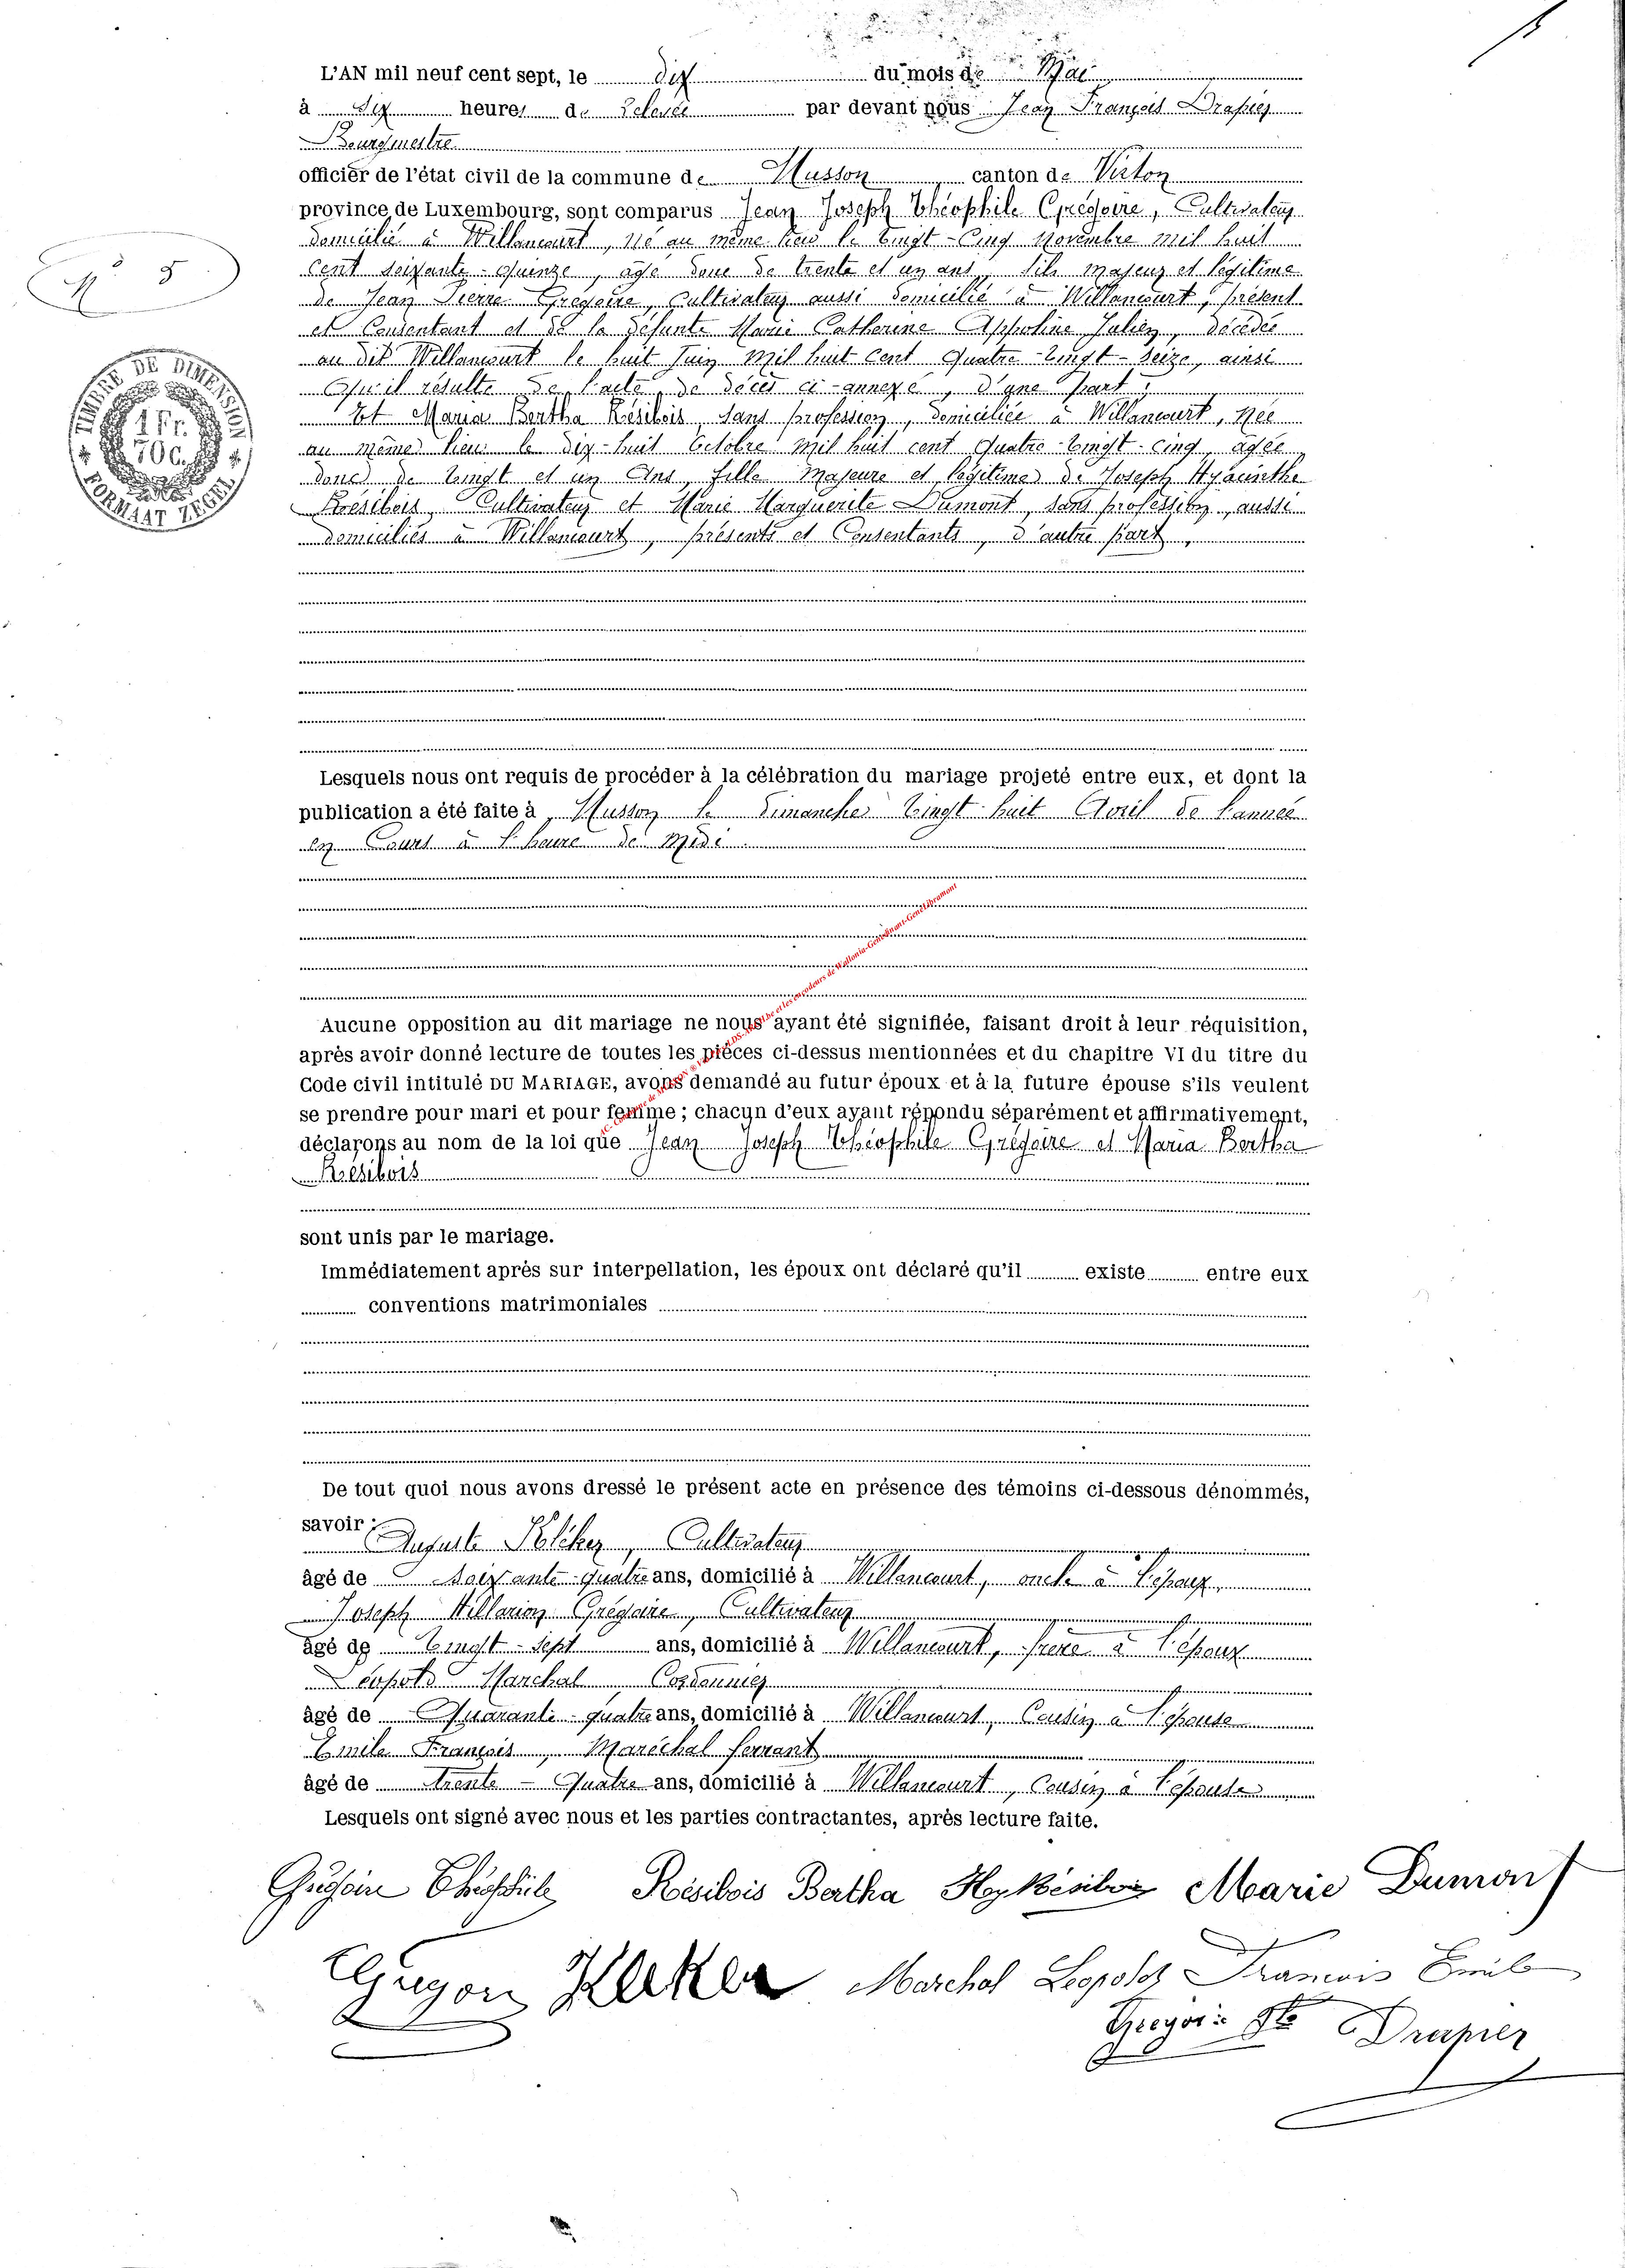 L'AN mil neuf cent sept, le dix du mois de Mai
à six heures du relevée par devant nous Jean François Drapier
Bourgmestre
officier de l'état civil de la commune de Musson canton de Virton
province de Luxembourg, sont comparus Jean Joseph Théophile Grégoire, Cultivateur
domicilié à Willancourt, né au même lieu le vingt-cinq Novembre mil huit
cent soixante-quinze, âgé donc de trente et un ans, fils majeur et légitime
N° 5
de Jean Pierre Grégoire, Cultivateur aussi domicilié à Willancourt, présent
et consentant et de la défunte Marie Catherine Appoline Julien, décédée
au dit Willancourt le huit Juin mil huit cent quatre-vingt-seize, ainsi
qu'il résulte de l'acte de décès ci-annexé, d'une part ;
Et Maria Bertha Résibois, sans profession, domiciliée à Willancourt, née
au même lieu le dix-huit Octobre mil huit cent quatre-vingt-cinq, âgée
donc de vingt et un ans, fille majeure et légitime de Joseph Hyacinthe
Résibois, Cultivateur et Marie Marguerite Dumont, sans profession, aussi
domiciliés à Willancourt, présents et Consentants, d'autre part,
TIMBRE DE DIMENSION
1 Fr.
70 C.
FORMAAT ZEGEL
Lesquels nous ont requis de procéder à la célébration du mariage projeté entre eux, et dont la
publication a été faite à Musson le Dimanche vingt-huit Avril de l'année
en cours à l'heure de midi
AC. Commune de MUSSON et les encodeurs de Wallonia-GeneDinant-GeneLibramont
Aucune opposition au dit mariage ne nous ayant été signifiée, faisant droit à leur réquisition,
après avoir donné lecture de toutes les pièces ci-dessus mentionnées et du chapitre VI du titre du
Code civil intitulé DU MARIAGE, avons demandé au futur époux et à la future épouse s'ils veulent
se prendre pour mari et pour femme ; chacun d'eux ayant répondu séparément et affirmativement,
déclarons au nom de la loi que Jean Joseph Théophile Grégoire et Maria Bertha
Résibois
sont unis par le mariage.
Immédiatement après sur interpellation, les époux ont déclaré qu'il existe entre eux
conventions matrimoniales
De tout quoi nous avons dressé le présent acte en présence des témoins ci-dessous dénommés,
savoir :
Auguste Kelcker, Cultivateur
âgé de soixante-quatre ans, domicilié à Willancourt, oncle à l'époux,
Joseph Hillarion Grégoire, Cultivateur
âgé de vingt-sept ans, domicilié à Willancourt, frère à l'époux
Léopold Marchal Cordonnier
âgé de quarante-quatre ans, domicilié à Willancourt, Cousin à l'épouse
Emile François, Maréchal ferrant
âgé de trente-quatre ans, domicilié à Willancourt, Cousin à l'épouse
Lesquels ont signé avec nous et les parties contractantes, après lecture faite.
Grégoire Théophile Résibois Bertha Hy Résibois Marie Dumont
Marchal Léopold François Emile
Drapier